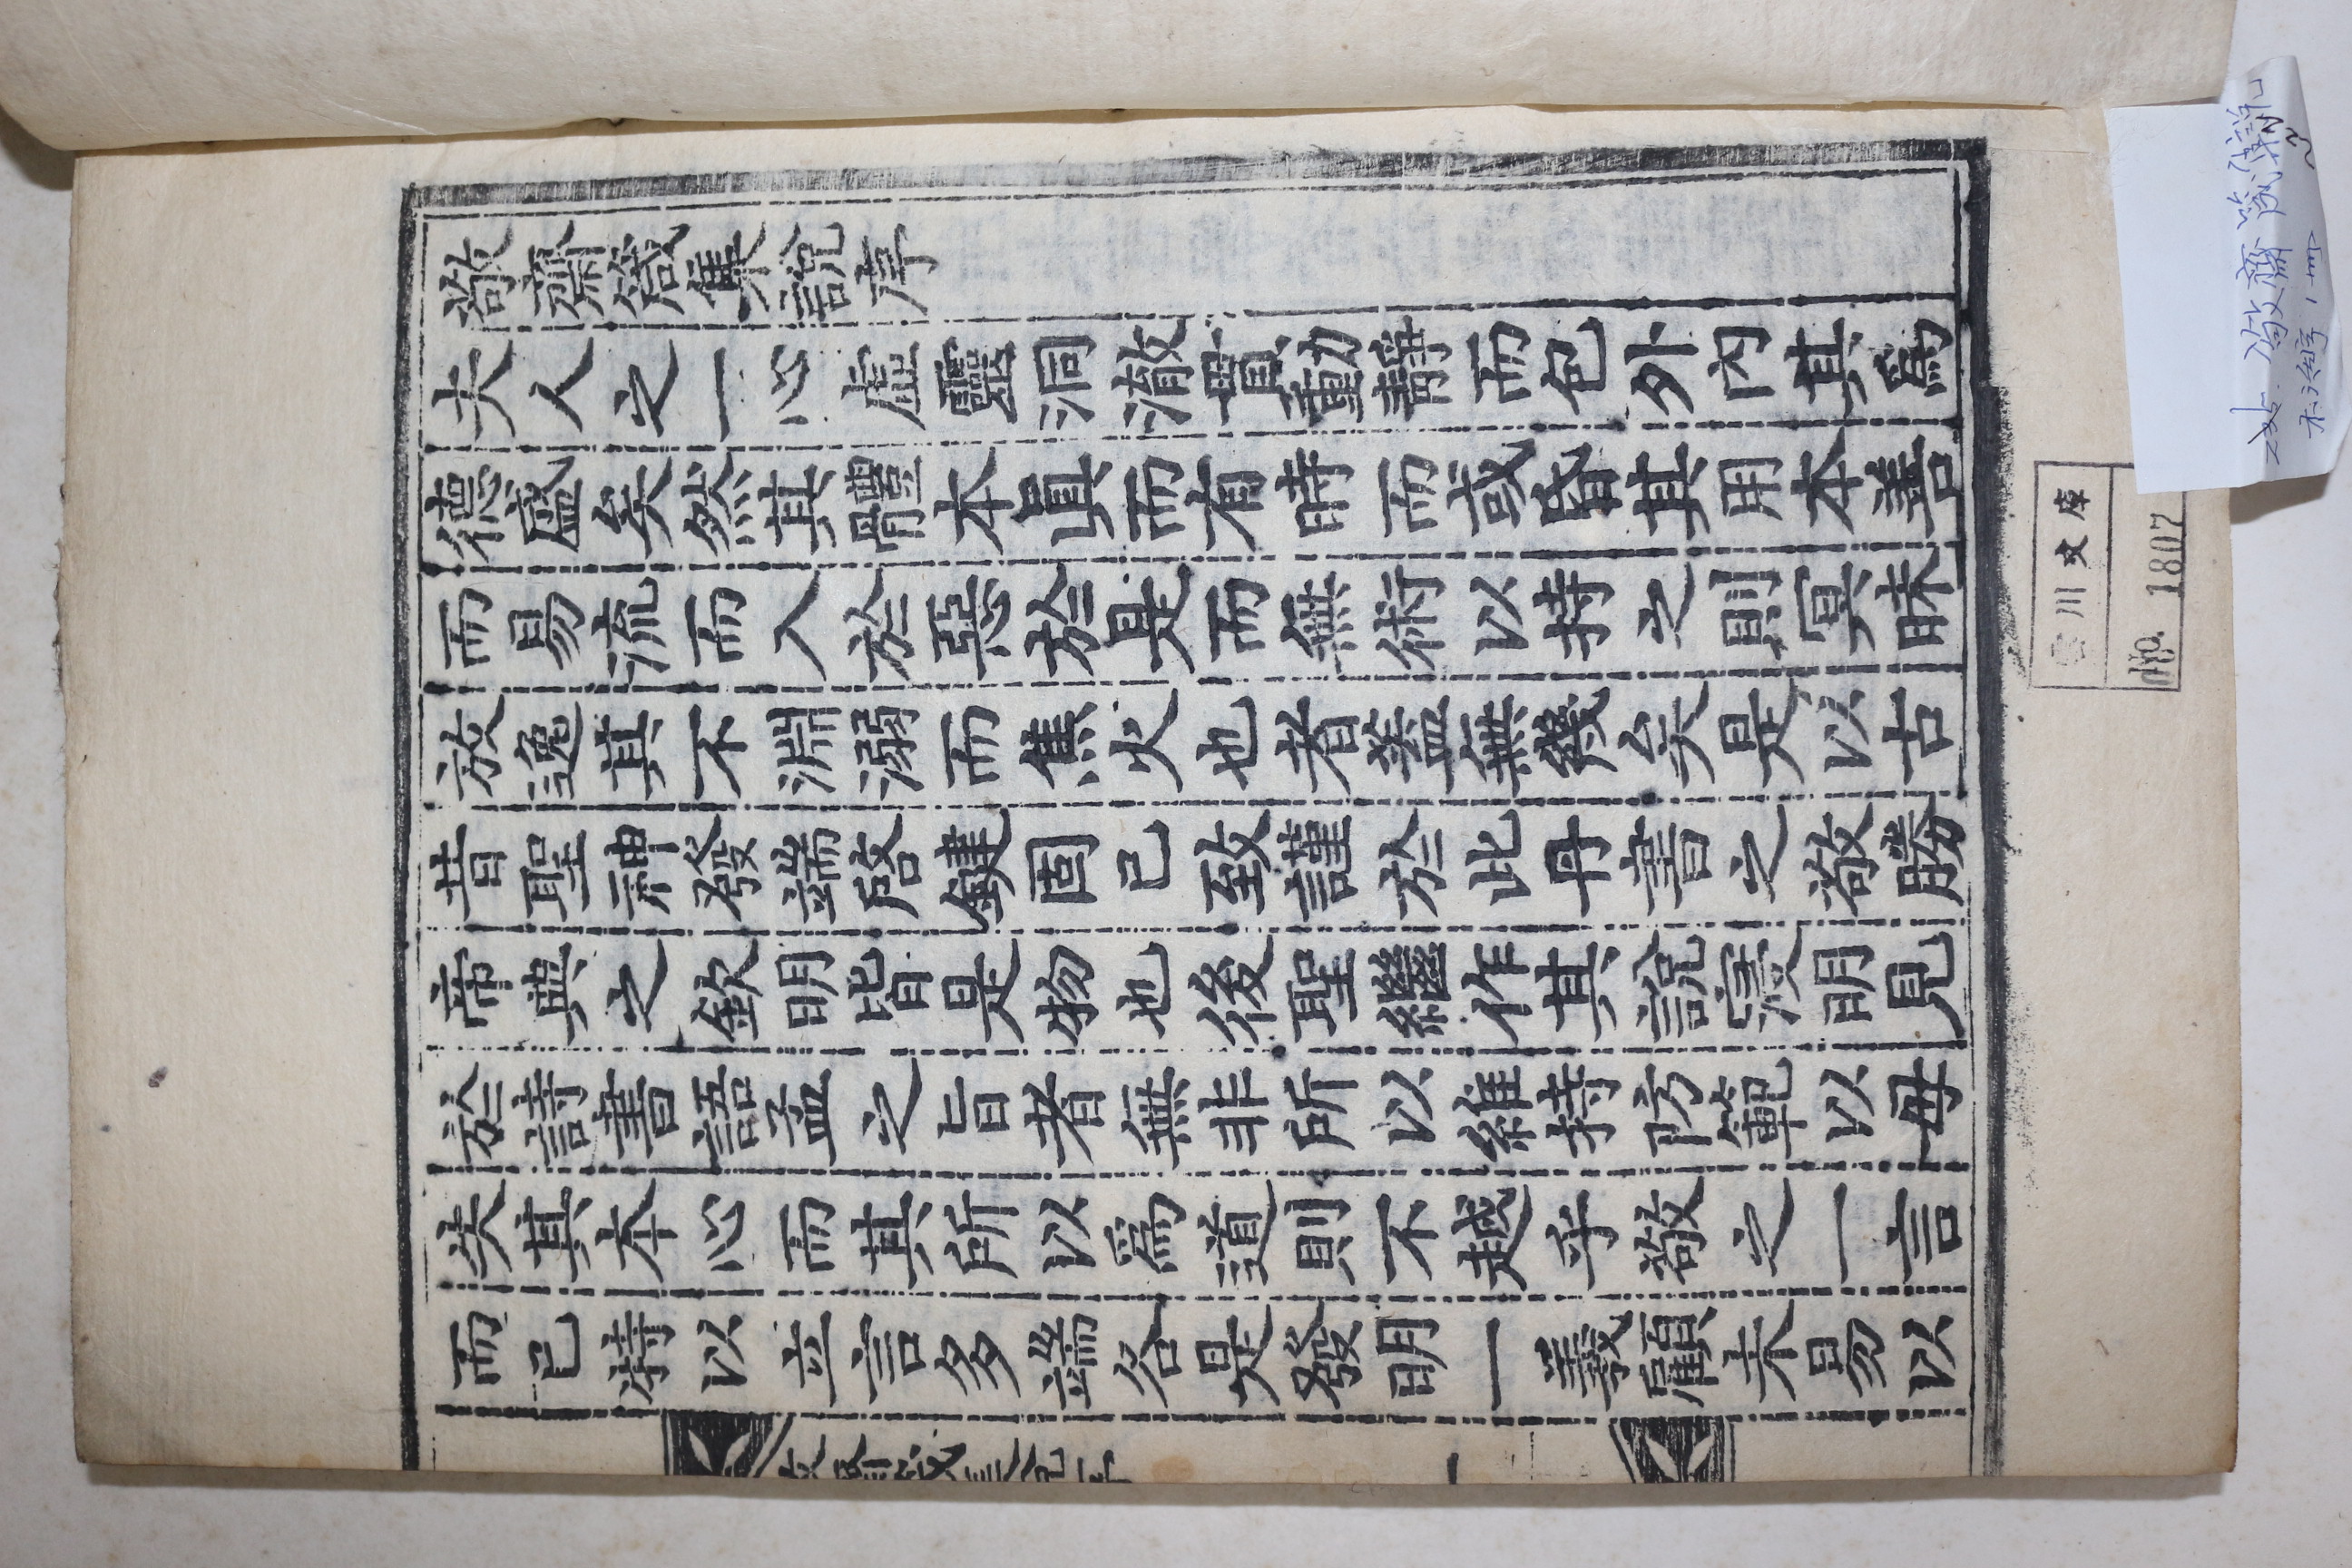 敬齋箴集說序
夫人之一心虛靈洞澈貫動靜而包外內其爲
德盛矣然其體本眞而有時而或昏其用本善
而易流而入於惡於是而無術以持之則冥昧
放逸其不淵溺而焦火也者蓋無幾矣是以古
昔聖神發端啓鍵固已致謹於此丹書之敬勝
帝典之欽明皆是物也後聖繼作其說寖明見
於詩書語孟之旨者無非所以維持防範以毋
失其本心而其所以爲道則不越乎敬之一言
而已特以立言多端各是發明一義顧未易以
一
川文庫
No. 1807
敬齋箴集說